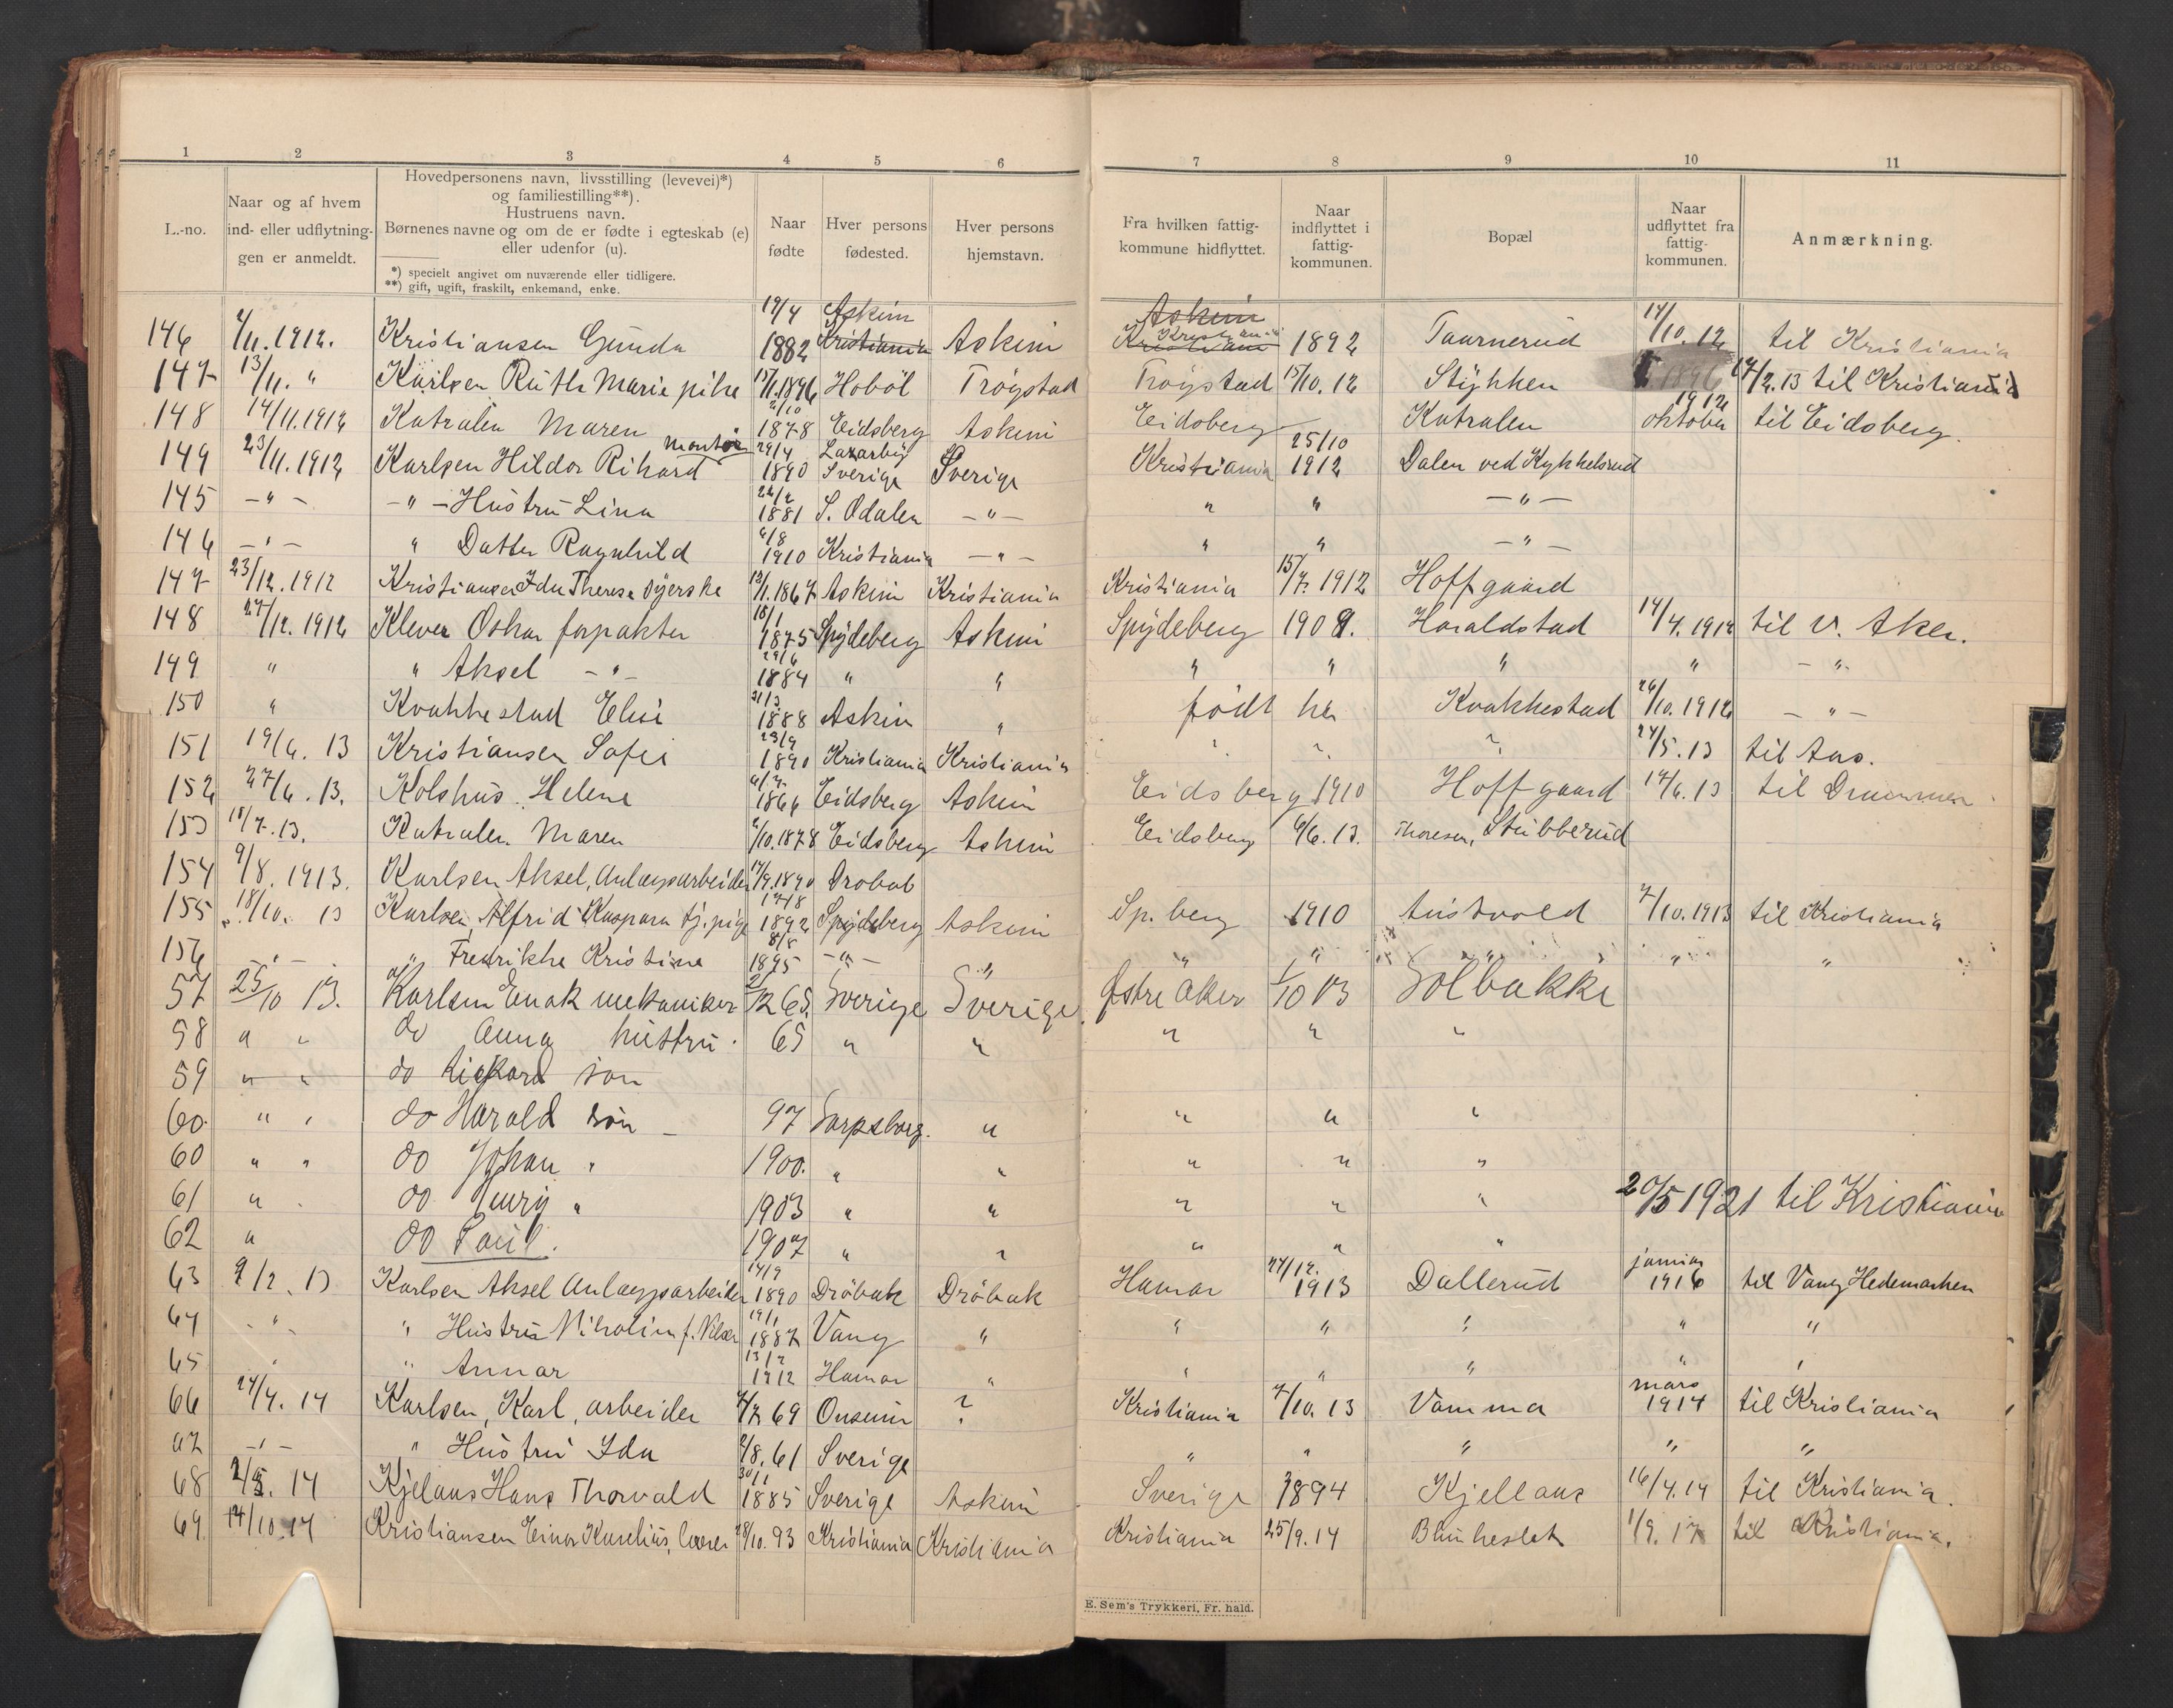 1 2 3 4 5 6 7 8 9 10 11
L.-no.
Naar og af hvem
ind- eller udflytnin-
gen er anmeldt.
Hovedpersonens navn, livsstilling (levevei)*)
og familiestilling**).
Hustruens navn.
Børnenes navne og om de er fødte i egteskab (e)
eller udenfor (u).
*) specielt angivet om nuværende eller tidligere.
**) gift, ugift, fraskilt, enkemand, enke.
Naar
fødte
Hver persons
fødested.
Hver persons
hjemstavn.
Fra hvilken fattig-
kommune hidflyttet.
Naar
indflyttet i
fattig-
kommunen.
Bopæl
Naar
udflyttet fra
fattig-
kommunen.
Anmærkning.
146 2/11. 1912. Kristiansen Gunda 19/4 1882 Askim Kristiania Askim Askim Kristiania 1892 Taarnerud 14/10. 12 til Kristiania
147 13/11. " Karlsen Ruth Marie pike 15/1.1896 Hobøl Trøgstad Trøgstad 15/10. 12 Stykken 1896 14/2. 13 til Kristiania
148 14/11. 1912 Katralen Maren 2/10 1878 Eidsberg Askim Eidsberg Katralen oktober 1912 til Eidsberg.
149 23/11. 1912 Karlsen Hildor Rikard montør 29/4 1890 Laxarby Sverige Sverige Kristiania 25/10 1912 Dalen ved Kykkelsrud
145 - " - - " - Hustru Lina 22/2 1881 S. Odalen - " - " " - " -
146 - " - " Datter Ragnhild 6/8 1910 Kristiania - " - " " - " -
147 23/12. 1912 Kristiansen Ida Therese Syerske 13/1.1867 Askim Kristiania Kristiania 15/7. 1912 Hoff gaard
148 27/12. 1912 Klever Oskar forpakter 18/1 1875 Spydeberg Askim Spydeberg 1909. Haraldstad 14/4. 1912 til V. Aker.
149 " " Aksel - " - 29/6 1884 " " " " " " - " -
150 " Kvakkestad Elise 31/3 1888 Askim " født her Kvakkestad 26/10. 1912 - " -
151 19/6. 13 Kristiansen Sofie 23/9 1890 Kristiania Kristiania " " " 24/5. 13 til Aas.
152 27/6. 13. Kolshus Helene 6/7 1866 Eidsberg Askim Eidsberg 1910 Hoff gaard 14/6. 13 til Drammen
153 18/7. 13. Katralen Maren 2/10.1878 Eidsberg Askim Eidsberg 6/6. 13. Thoresen, Stubberud
154 9/8. 1913. Karlsen Aksel, Anlægsarbeider 14/9.1890 Drøbak
155 18/10. 13 Karlsen, Alfrid Kaspara tj.pige 17/8 1892 Spydeberg Askim Sp. berg 1910 Austvold 7/10. 1913 til Kristiania
156 - " - " Fredrikke Kristine 8/8 1895 - " - " " " " " "
57 25/10 13. Karlsen Enok mekaniker 2/12 65. Sverige Sverige Østre Aker 1/10 13 Solbakke
58 " " do Anna hustru. 65 " " " " "
59 " " do Rickard søn
60. " " do Harald søn - 97 Sarpsborg. " " " "
60 " " do Johan " 1900. " " " " "
61 " " do Georg " 1903 " " " " " 20/5 1921 til Kristiania
62 " do Paul. 1907 " " " " "
63 9/2. 13 Karlsen Aksel Anlægsarbeider 14/9 1890 Drøbak Drøbak Hamar 27/12. 1913 Dallerud januar 1916 til Vang Hedemarken
64 - " - " Hustru Nikoline f. Nilsen 19/1 1887 Vang " " " " " "
65 " " Annar 13/2 1912 Hamar " " " " " "
66 24/4. 14 Karlsen, Karl, arbeider 4/7 69 Onsøum ? Kristiania 7/10. 13 Vamma mars 1914 til Kristiania
67 - " - " Hustru Ida 2/8. 61 Sverige " " " " "
68 2/5. 14 Kjelaas Hans Thorvald 30/1 1885 Sverige Askim Sverige 1894 Kjellaas 16/4.14 til Kristiania.
69. 14/10.14 Kristiansen Einar Karelius, 28/10. 93 Kristiania Kristiania Kristiania 25/9.14 1/9. 17 til Kristiania.
E. Sem's Trykkeri, Fr. hald.